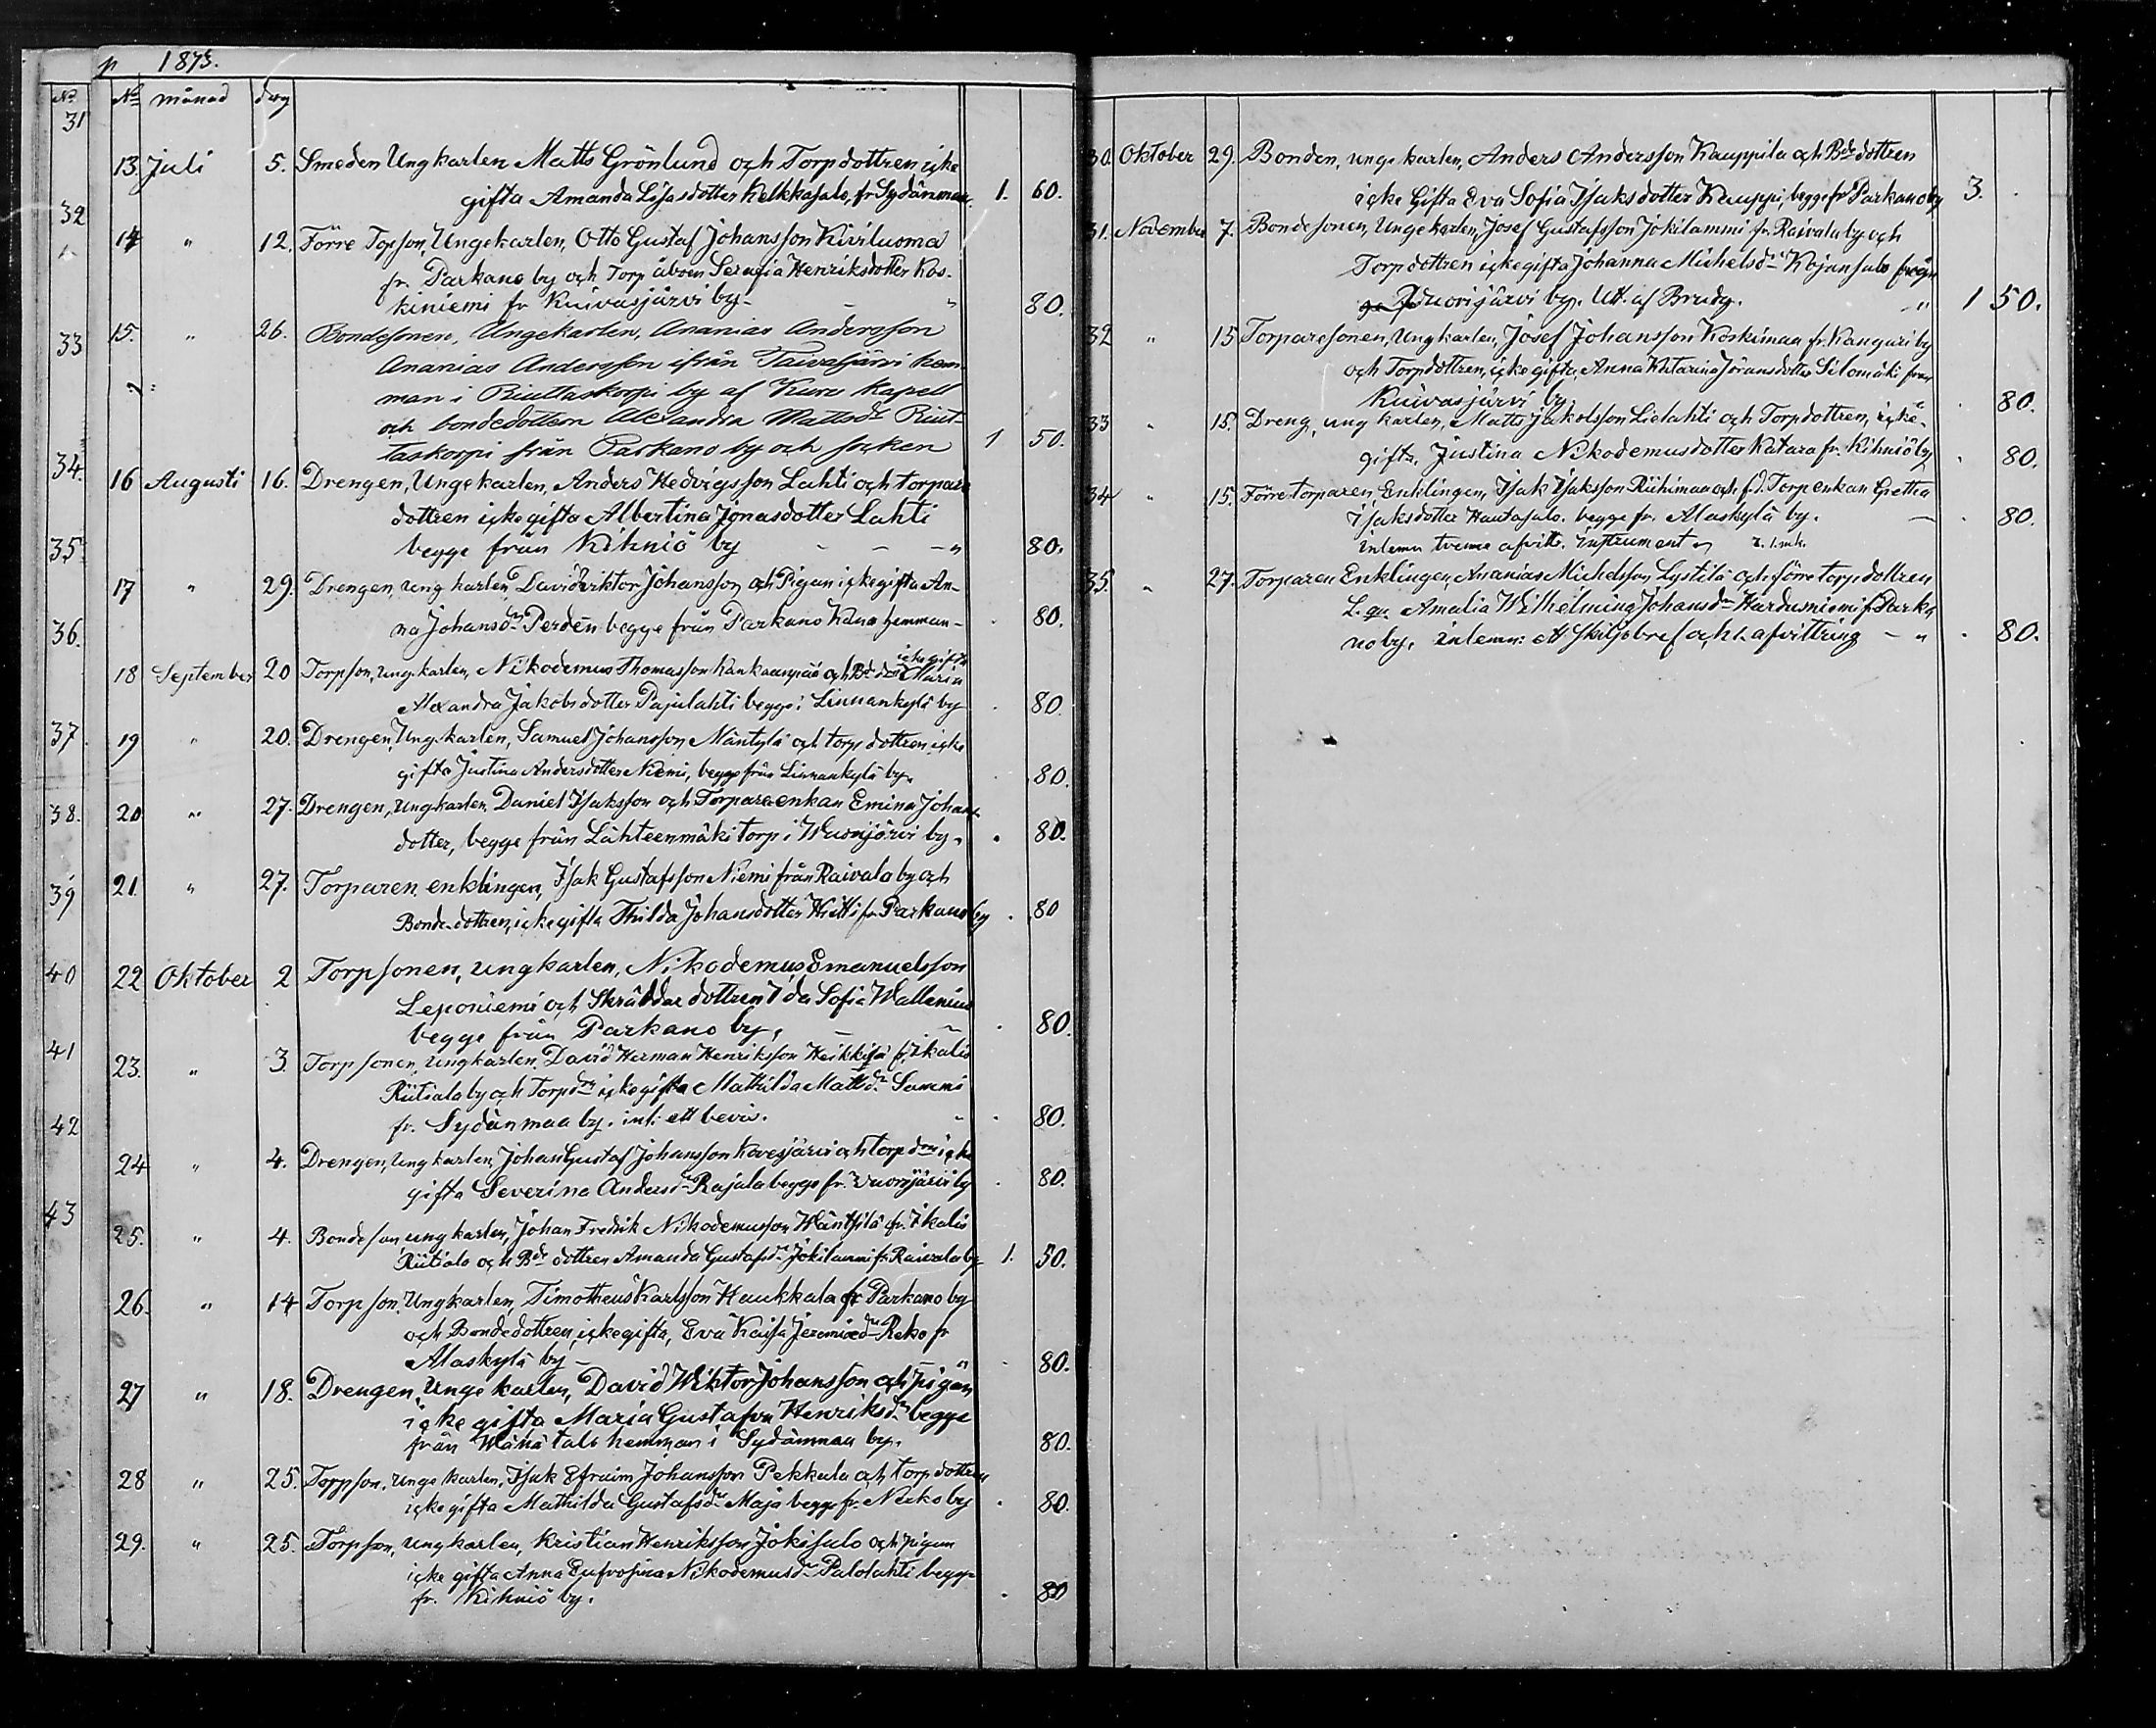 p 1873.
No
31
32
33
34.
35
36.
37
38.
39
40
41
42
43
No månad dag
13 Juli 5. Smeden Ungkarlen Matts Grönlund och Torpdottren icke
gifta Amanda Lisasdotter Kelkkasalo, fr Sydänmaa. 1. 60.
14 " 12. Förre Torpson, Ungekarlen, Otto Gustaf Johansson Kiviluoma
fr. Parkano by och Torp åboen Serafia Henriksdotter Kos-
kiniemi fr Kuivasjärvi by - - " 80.
15. " 26. Bondesonen, Ungekarlen, Ananias Andersson
Ananias Andersson ifrån Taivalsjärvi hem
man i Riuttaskorpi by af Kuru Kapell
och bondedottern Alexandra Mattsdr Riut-
taskorpi från Parkano by och socken 1 50.
16 Augusti 16. Drengen, Ungekarlen, Anders Hedvigsson Lahti och torpare
dottren icke gifta Albertina Jonasdotter Lahti
begge från Kihniö by - - - " 80.
17 " 29. Drengen, ung karlen, David Viktor Johansson och Pigan icke gifta An-
na Johansdr Perdén begge från Parkano hemman - . 80.
18 September 20 Torpson, ungkarlen, Nikodemus Thomasson Kankaanpää och Bdedr icke gifta Maria
Alexandra Jakobsdotter Pajulahti begge i Linnankylä by . 80
19 " 20. Drengen, Ungkarlen, Samuel Johansson Mäntylä och torpdottren icke
gifta Justina Andersdotter Niemi, begge från Linnankylä by. 80.
20 " 27. Drengen, Ungkarlen, Daniel Isaksson och Torpareenkan Emina Johans-
dotter, begge från Lähteenmäki torp i Wuorijärvi by. . 80.
21. " 27. Torparen, enklingen, Isak Gustafsson Niemi från Raivala by och
Bondedottren, icke gifta Thilda Johansdotter Hietti fr Parkano by . 80
22 Oktober 2 Torpsonen, ungkarlen, Nikodemus Emanuelsson
Leponiemi och Skräddar dottren Ida Sofia Wallenius
begge från Parkano by, - - . 80.
23. " 3. Torpsonen, ungkarlen, David Herman Henriksson Heikkilä fr. Ikalis
Riitiala by och Torpdrn icke gifta Mathilda Mattsdr Sammi
fr. Sydänmaa by. inl: ett bevis. " . 80.
24 " 4. Drengen, Ungkarlen, Johan Gustaf Johansson Kovesjärvi och Torpdrn icke
gifta Severina Andersdr Rajala begge fr. Vuorijärvi by . 80.
25. " 4. Bondeson, ungkarlen, Johan Fredrik Nikodemusson Mäntsilä fr. Ikalis
Riitiala och Bde dottren Amanda Gustafsdr Jokilammi fr Raivala by 1. 50.
26. " 14 Torpson, Ungkarlen, Timotheus Karlsson Haukkala fr Parkano by
och Bondedottren, icke gifta, Eva Kaisa Jeremiædr Reko fr
Alaskylä by - - " . 80.
27 " 18. Drengen, Unge karlen, David Wiktor Johansson och pigan
icke gifta Maria Gustafva Henriksdr begge
från hemman i Sydänmaa by. 80.
28 " 25. Torpson, unge karlen, Isak Efraim Johansson Pekkala och torpdottren
icke gifta Mathilda Gustafsdr Maja begge fr. Nerko by . 80.
29. " 25. Torpson, ungkarlen, Kristian Henriksson Jokisalo och pigan
icke gifta Anna Eufrosina Nikodemusdr Palolahti begge
fr. Kihniö by. . 80
30. Oktober 29. Bonden, unge karlen, Anders Andersson Kauppila och Bde dottren
icke Gifta Eva Sofia Isaksdotter Kauppi, begge fr Parkano by 3. .
31. November 7. Bondesonen, Ungekarlen, Josef Gustafsson Jokilammi fr. Raivala by och
Torpdottren icke gifta Johanna Michelsdr Kojansalo
Vuorijärvi by. Utt. af Brudg. " 1 50.
32 " 15 Torparesonen, Ungkarlen, Josef Johansson Koskimaa fr. Kangari by
och Torpdottren, icke gifta, Anna Katarina Jöransdotter Silomäki från
Kuivasjärvi by. " . 80.
33 " 15. Dreng, ung karlen, Matts Jakobsson Lielahti och Torpdottren, icke
gifta, Justina Nikodemusdotter Katara fr. Kihniö by . 80.
34 " 15. Förre torparen, Enklingen, Isak Isaksson Riihimaa och f.d. Torpenkan Gretha
Isaksdotter Hautasalo. begge fr. Alaskylä by. - . 80.
inlemn tvenne afvittr. instrument 1. mk.
35. " 27. Torparen Enklingen, Ananias Michelsson Lystilä och förre torpdottren
L. qv. Amalia Wilhelmina Johansdr Harduniemi fr Parka
no by. inlemn: ett skiljobref och 1. afvittring - " . 80.